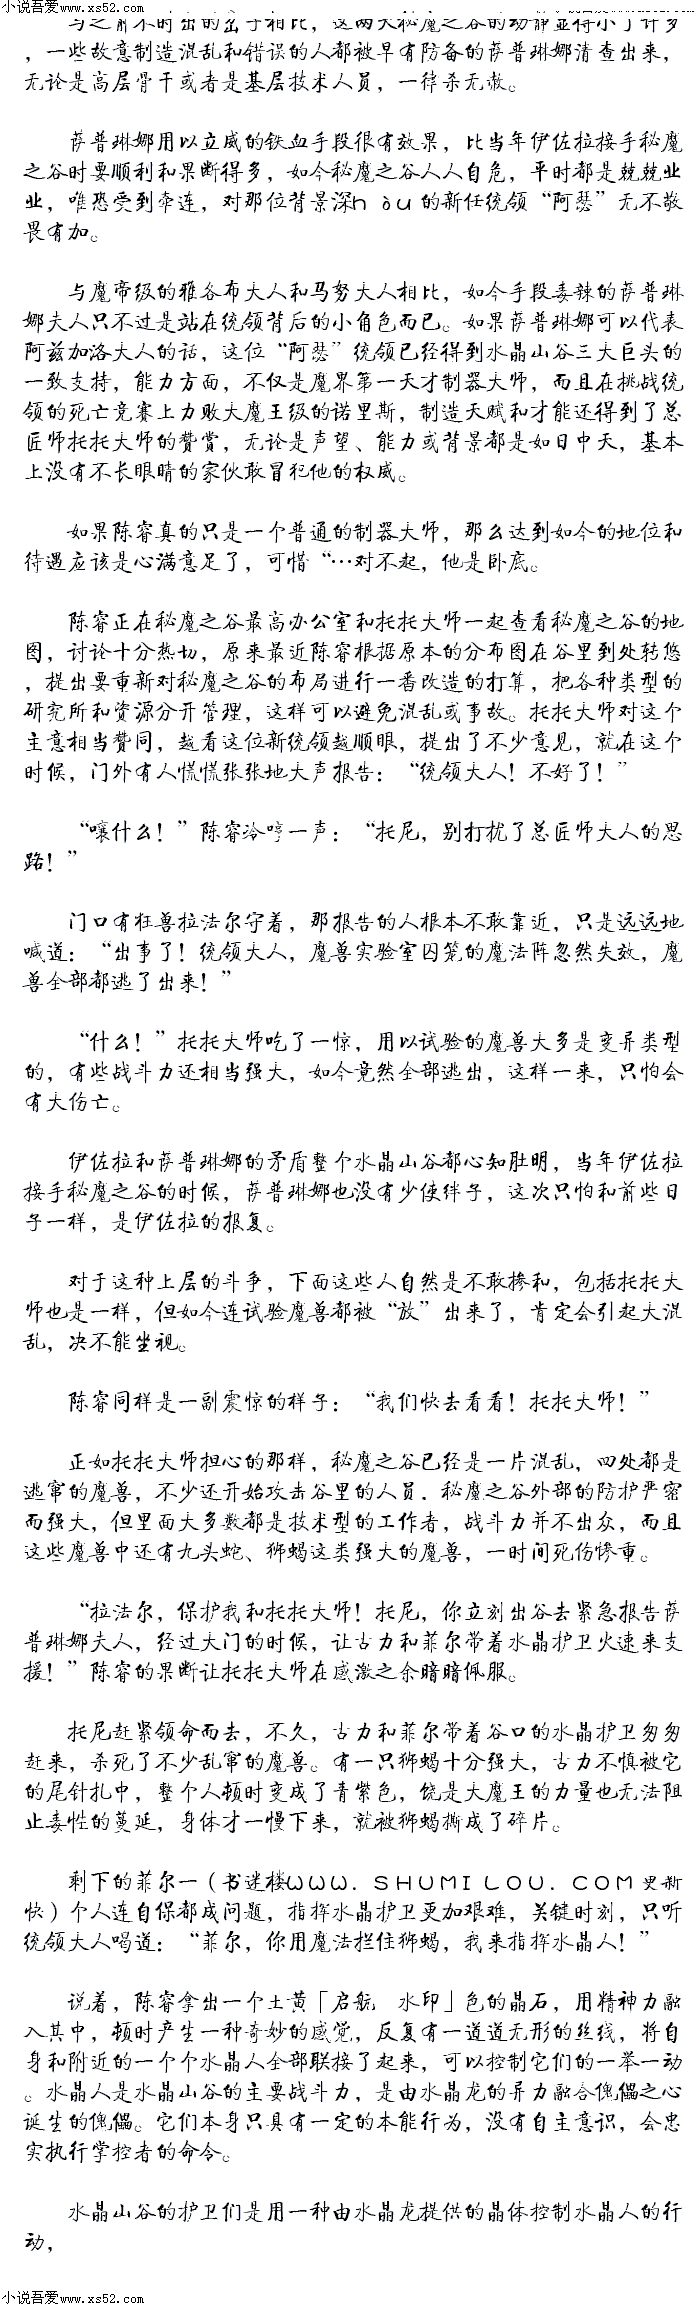 小说吾爱www.xs52.com
与之前不时出的岔子相比，这两天秘魔之谷的动静显得小了许多
，一些故意制造混乱和错误的人都被早有防备的萨普琳娜清查出来，
无论是高层骨干或者是基层技术人员，一律杀无赦。
萨普琳娜用以立威的铁血手段很有效果，比当年伊佐拉接手秘魔
之谷时要顺利和果断得多，如今秘魔之谷人人自危，平时都是兢兢业
业，唯恐受到牵连，对那位背景深hòu的新任统领“阿瑟”无不敬
畏有加。
与魔帝级的雅谷布大人和马努大人相比，如今手段毒辣的萨普琳
娜夫人只不过是站在统领背后的小角色而已。如果萨普琳娜可以代表
阿兹加洛大人的话，这位“阿瑟”统领已经得到水晶山谷三大巨头的
一致支持，能力方面，不仅是魔界第一天才制器大师，而且在挑战统
领的死亡竞赛上力败大魔王级的诺里斯，制造天赋和才能还得到了总
匠师托托大师的赞赏，无论是声望、能力或背景都是如日中天，基本
上没有不长眼睛的家伙敢冒犯他的权威。
如果陈睿真的只是一个普通的制器大师，那么达到如今的地位和
待遇应该是心满意足了，可惜“…对不起，他是卧底。
陈睿正在秘魔之谷最高办公室和托托大师一起查看秘魔之谷的地
图，讨论十分热切，原来最近陈睿根据原本的分布图在谷里到处转悠
，提出要重新对秘魔之谷的布局进行一番改造的打算，把各种类型的
研究所和资源分开管理，这样可以避免混乱或事故。托托大师对这个
主意相当赞同，越看这位新统领越顺眼，提出了不少意见，就在这个
时候，门外有人慌慌张张地大声报告：“统领大人！不好了！”
“嚷什么！”陈睿冷哼一声：“托尼，别打扰了总匠师大人的思
路！”
门口有狂兽拉法尔守着，那报告的人根本不敢靠近，只是远远地
喊道：“出事了！统领大人，魔兽实验室囚笼的魔法阵忽然失效，魔
兽全部都逃了出来！”
“什么！”托托大师吃了一惊，用以试验的魔兽大多是变异类型
的，有些战斗力还相当强大，如今竟然全部逃出，这样一来，只怕会
有大伤亡。
伊佐拉和萨普琳娜的矛盾整个水晶山谷都心知肚明，当年伊佐拉
接手秘魔之谷的时候，萨普琳娜也没有少使绊子，这次只怕和前些日
子一样，是伊佐拉的报复。
对于这种上层的斗争，下面这些人自然是不敢掺和，包括托托大
师也是一样，但如今连试验魔兽都被“放”出来了，肯定会引起大混
乱，决不能坐视。
陈睿同样是一副震惊的样子：“我们快去看看！托托大师！”
正如托托大师担心的那样，秘魔之谷已经是一片混乱，四处都是
逃窜的魔兽，不少还开始攻击谷里的人员．秘魔之谷外部的防护严密
而强大，但里面大多数都是技术型的工作者，战斗力并不出众，而且
这些魔兽中还有九头蛇、狮蝎这类强大的魔兽，一时间死伤惨重。
“拉法尔，保护我和托托大师！托尼，你立刻出谷去紧急报告萨
普琳娜夫人，经过大门的时候，让古力和菲尔带着水晶护卫火速来支
援！”陈睿的果断让托托大师在感激之余暗暗佩服。
托尼赶紧领命而去，不久，古力和菲尔带着谷口的水晶护卫匆匆
赶来，杀死了不少乱窜的魔兽。有一只狮蝎十分强大，古力不慎被它
的尾针扎中，整个人顿时变成了青紫色，饶是大魔王的力量也无法阻
止毒性的蔓延，身体才一慢下来，就被狮蝎撕成了碎片。
剩下的菲尔一（书迷楼ＷＷＷ．ＳＨＵＭＩＬＯＵ．ＣＯＭ更新
快）个人连自保都成问题，指挥水晶护卫更加艰难，关键时刻，只听
统领大人喝道：“菲尔，你用魔法拦住狮蝎，我来指挥水晶人！”
说着，陈睿拿出一个土黄「启航 水印」色的晶石，用精神力融
入其中，顿时产生一种奇妙的感觉，反复有一道道无形的丝线，将自
身和附近的一个个水晶人全部联接了起来，可以控制它们的一举一动
。水晶人是水晶山谷的主要战斗力，是由水晶龙的异力融合傀儡之心
诞生的傀儡。它们本身只具有一定的本能行为，没有自主意识，会忠
实执行掌控者的命令。
水晶山谷的护卫们是用一种由水晶龙提供的晶体控制水晶人的行
动，
小说吾爱www.xs52.com